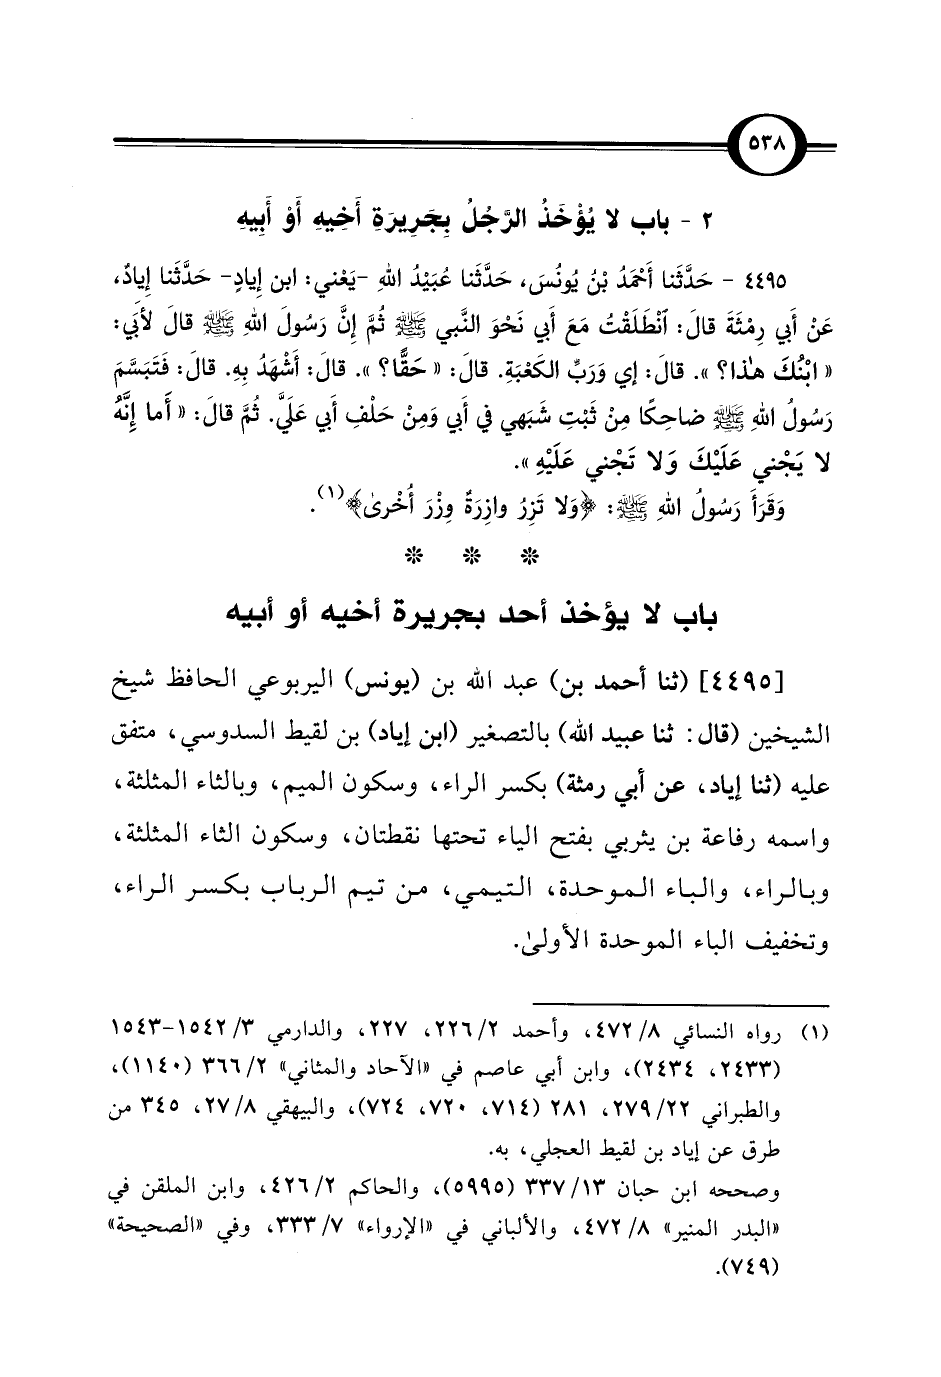 ٥٣٨
٢ - باب لا يُؤْخَذُ الرَّجُلُ بِجَرِيرَةِ أَخِيهِ أَوْ أَبِيهِ
٤٤٩٥ - حَدَّثَنا أَحْمَدُ بْنُ يُونُسَ، حَدَّثَنا عُبَيْدُ اللهِ -يَعْني: ابن إِيادٍ- حَدَّثَنا إِيادٌ،
عَنْ أَبي رِمْثَةَ قالَ: اَنْطَلَقْتُ مَعَ أَبي نَحْوَ النَّبي ﷺ ثُمَّ إِنَّ رَسُولَ اللهِ ﷺ قالَ لأَبي:
« ابْنُكَ هٰذا؟ ». قالَ: إي وَرَبِّ الكَعْبَةِ. قالَ: « حَقًّا؟ ». قالَ: أَشْهَدُ بِهِ. قالَ: فَتَبَسَّمَ
رَسُولُ اللهِ ﷺ ضاحِكًا مِنْ ثَبْتِ شَبَهي في أَبي وَمِنْ حَلْفِ أَبي عَلَيَّ. ثُمَّ قالَ: « أَما إِنَّهُ
لا يَجْني عَلَيْكَ وَلا تَجْني عَلَيْهِ ».
وَقَرَأَ رَسُولُ اللهِ ﷺ: ﴿وَلا تَزِرُ وازِرَةٌ وِزْرَ أُخْرىٰ﴾(١).
* * *
باب لا يؤخذ أحد بجريرة أخيه أو أبيه
[٤٤٩٥] (ثنا أحمد بن) عبد الله بن (يونس) اليربوعي الحافظ شيخ
الشيخين (قال: ثنا عبيد الله) بالتصغير (ابن إياد) بن لقيط السدوسي، متفق
عليه (ثنا إياد، عن أبي رمثة) بكسر الراء، وسكون الميم، وبالثاء المثلثة،
واسمه رفاعة بن يثربي بفتح الياء تحتها نقطتان، وسكون الثاء المثلثة،
وبالراء، والباء الموحدة، التيمي، من تيم الرباب بكسر الراء،
وتخفيف الباء الموحدة الأولىٰ.
(١) رواه النسائي ٨/ ٤٧٢، وأحمد ٢/ ٢٢٦، ٢٢٧، والدارمي ٣/ ١٥٤٢-١٥٤٣
(٢٤٣٣، ٢٤٣٤)، وابن أبي عاصم في «الآحاد والمثاني» ٢/ ٣٦٦ (١١٤٠)،
والطبراني ٢٢/ ٢٧٩، ٢٨١ (٧١٤، ٧٢٠، ٧٢٤)، والبيهقي ٨/ ٢٧، ٣٤٥ من
طرق عن إياد بن لقيط العجلي، به.
وصححه ابن حبان ١٣/ ٣٣٧ (٥٩٩٥)، والحاكم ٢/ ٤٢٦، وابن الملقن في
«البدر المنير» ٨/ ٤٧٢، والألباني في «الإرواء» ٧/ ٣٣٣، وفي «الصحيحة»
(٧٤٩).